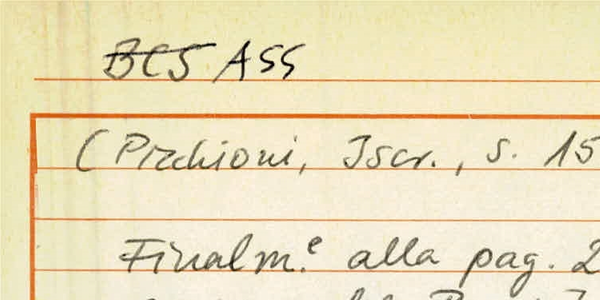 BCS ASS
(Picchioni, Iscr., s. 15
Finalm.e alla pag. 2